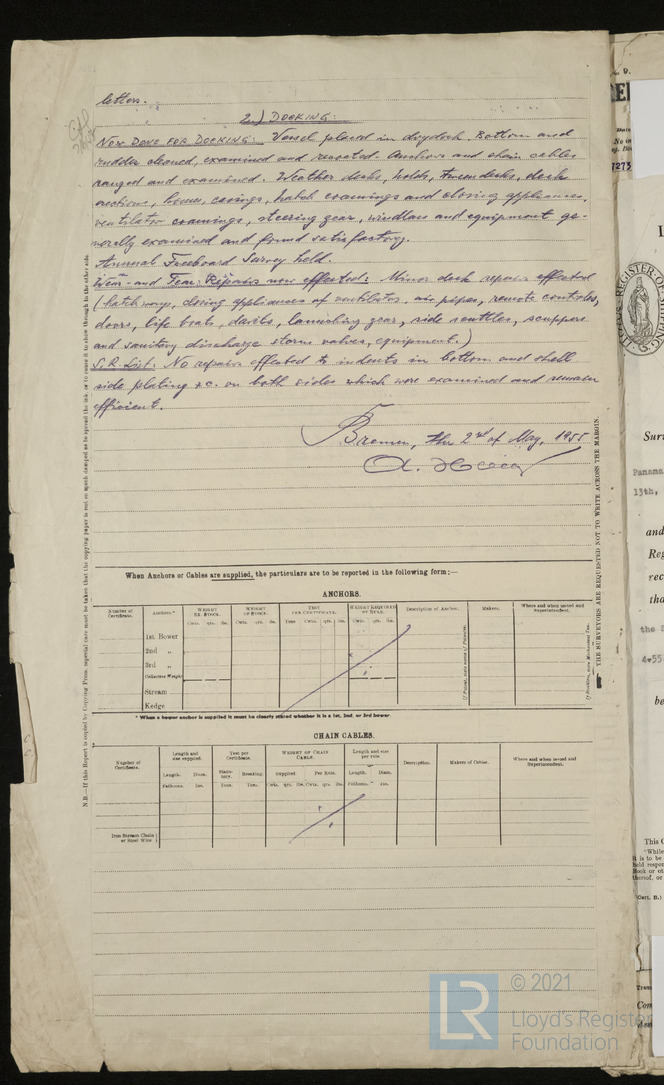 letters.
2.) DOCKING:
NOW DONE FOR DOCKING: Vessel placed in drydock. Bottom and
rudder cleaned, examined and recoated. Anchors and chain cables
ranged and examined. Weather decks, holds, Tweendecks, deck
erections, houses, casings, hatch coamings and closing appliances,
ventilator coamings, steering gear, windlass and equipment ge-
nerally examined and found satisfactory.
Annual Freeboard Survey held.
Wear and Tear Repairs now effected: Minor deck repairs effected
(hatchways, closing appliances of ventilators, air pipes, remote controles,
doors, life boats, davits, launching gear, side scuttles, scuppers
and sanitary discharge storm valves, equipment.)
S.R. List: No repairs effected to indents in bottom and shell
side plating &c. on both sides which were examined and remain
efficient.
Bremen, the 2nd of May, 1955
N.B.—If this Report is copied by Copying Press, special care must be taken that the copying paper is not so much damped as to spread the ink, or to cause it to show through to the other side.
THE SURVEYORS ARE REQUESTED NOT TO WRITE ACROSS THE MARGIN.
When Anchors or Cables are supplied, the particulars are to be reported in the following form:—
ANCHORS.
Number of Certificate. Anchors.* WEIGHT EX. STOCK. WEIGHT OF STOCK. TEST PER CERTIFICATE. WEIGHT REQUIRED BY RULE. Description of Anchor. Makers. Where and when tested and Superintendent.
Cwts. qrs. lbs. Cwts. qrs. lbs. Tons Cwts. qrs. lbs. Cwts. qrs. lbs.
1st Bower
2nd „
3rd „
Collective Weight
Stream
Kedge
* When a bower anchor is supplied it must be clearly stated whether it is a 1st, 2nd, or 3rd bower.
CHAIN CABLES.
Number of Certificate. Length and size supplied. Test per Certificate. WEIGHT OF CHAIN CABLE. Length and size per rule. Description. Makers of Cables. Where and when tested and Superintendent.
Length. Diam. Statutory. Breaking. Supplied. Per Rule. Length. Diam.
Fathoms. Ins. Tons. Tons. Cwts. qrs. lbs. Cwts. qrs. lbs. Fathoms. Ins.
Iron Stream Chain or Steel Wire
7273
Surv
Panama
13th,
and
Reg
rec
tha
the S
4-55
be
This C
"While
it is to be
held respon
Book or ot
thereof, or
Cert. B.)
Com
LR
© 2021
Lloyd's Register
Foundation